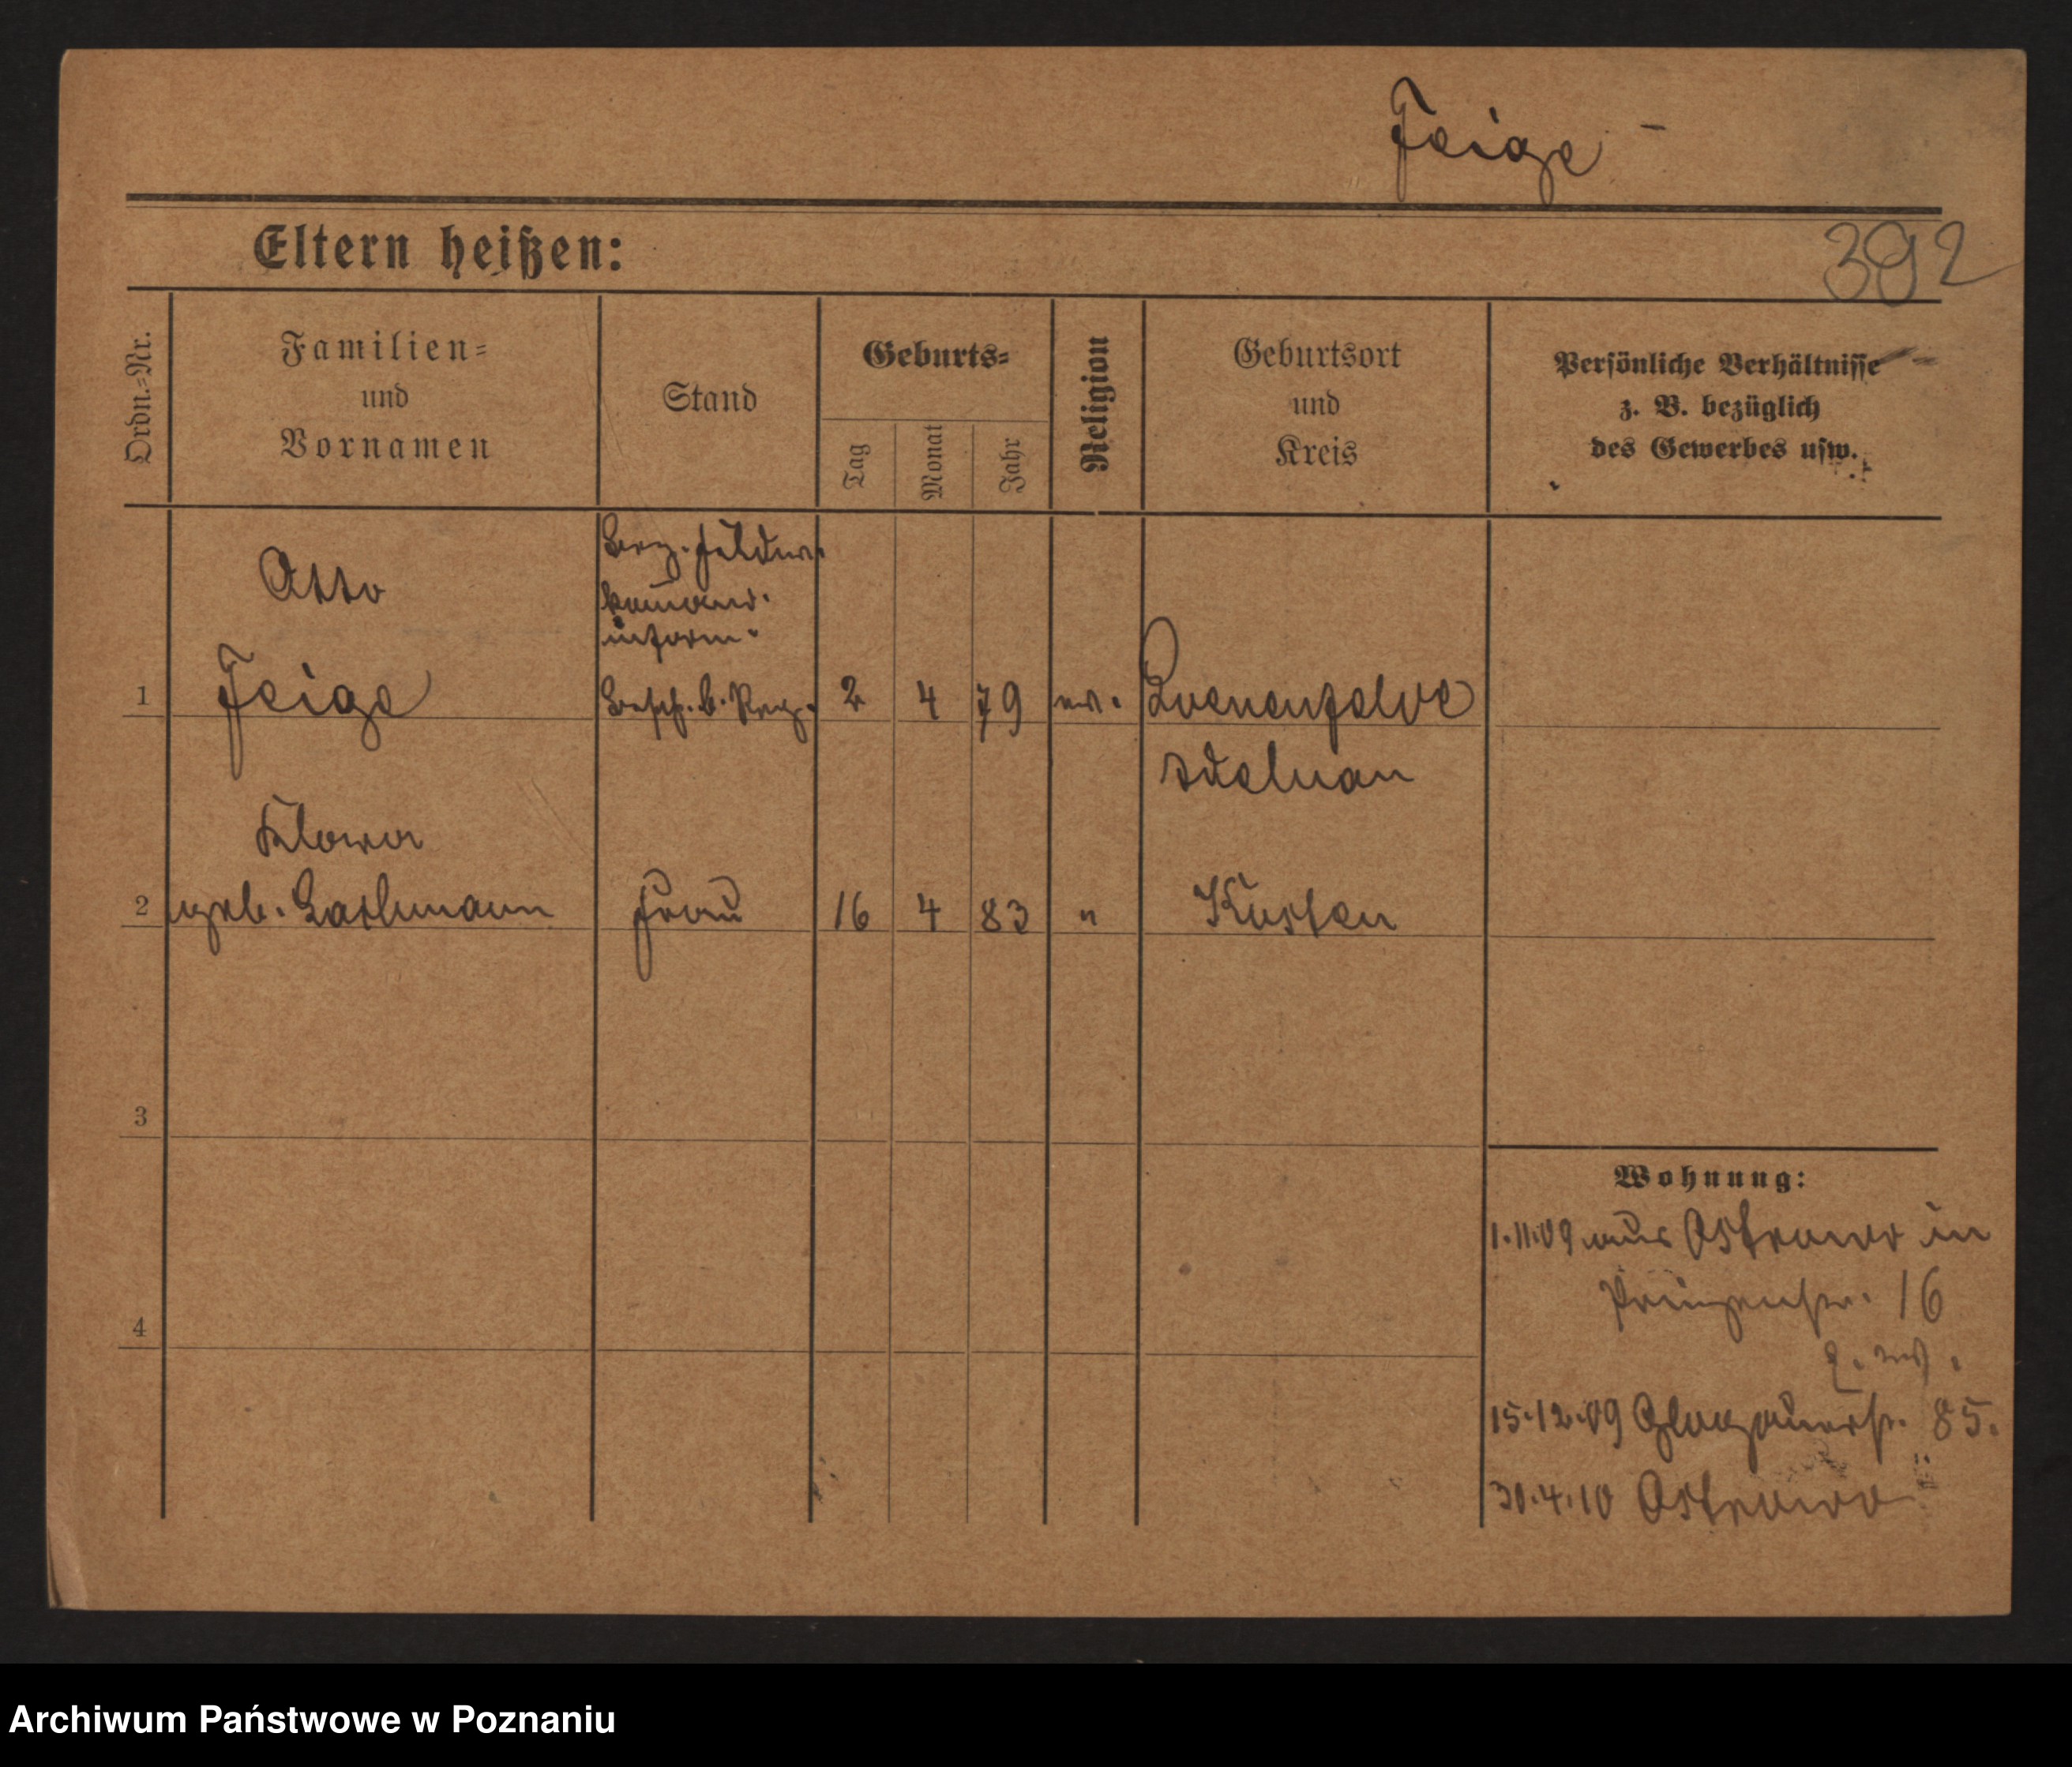 Feige
Eltern heißen:
392
Ordn.-Nr.
Familien-
und
Vornamen
Stand
Geburts-
Tag
Monat
Jahr
Religion
Geburtsort
und
Kreis
Persönliche Verhältnisse
z. B. bezüglich
des Gewerbes usw.
Otto
1 Feige 2 4 79 ev.
Klara
2 geb. Frau 16 4 83 " Kosten
3
4
Wohnung:
1.11.09 aus Ostrowo in
Prinzenstr. 16
15.12.09 Glogauerstr. 85.
30.4.10 Ostrowo
Archiwum Państwowe w Poznaniu